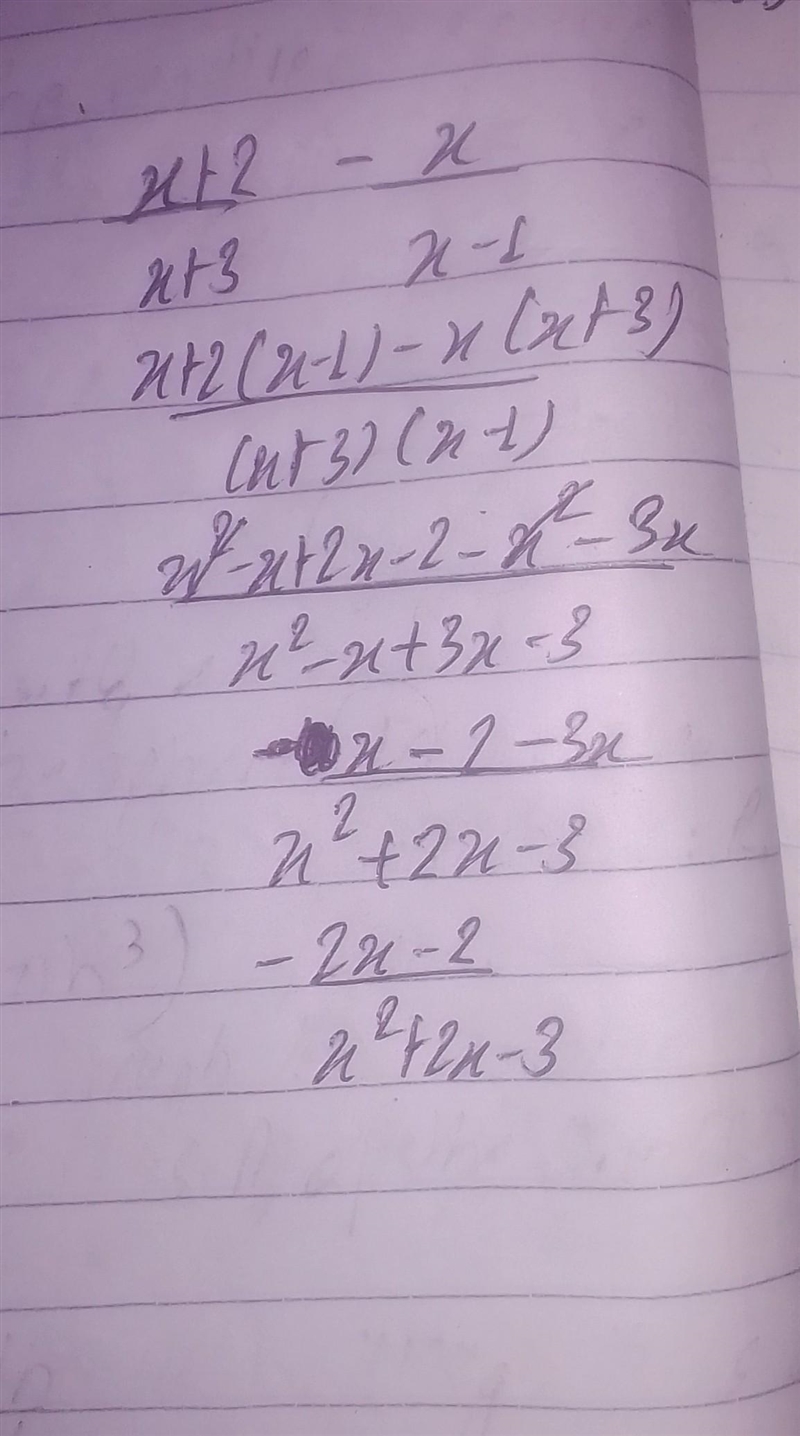 x+2 - x
x+3 x-1
x+2(x-1)-x(x+3)
(x+3)(x-1)
x²-x+2x-2-x²-3x
x²-x+3x-3
-x-2-3x
x²+2x-3
-2x-2
x²+2x-3
3)